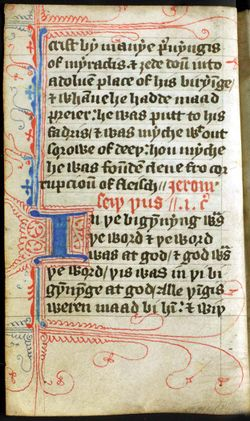 crist by manye pruyngis
of myraclis & ȝede doun into
a doluen place of his biryinge
& whanne he hadde maad
preier: he was putt to his
fadris: & was myche wͭout
sorowe of deey: hou myche
he was founden clene fro cor
rupcioun of fleisch // Jerom
seiy yus // .i. c̄.
In ye bigynnyng was
ye word & ye word
was at god / & god was
ye word / yis was in ye bi
gynnynge at god / alle yingis
weren maad bi hī: & wiy